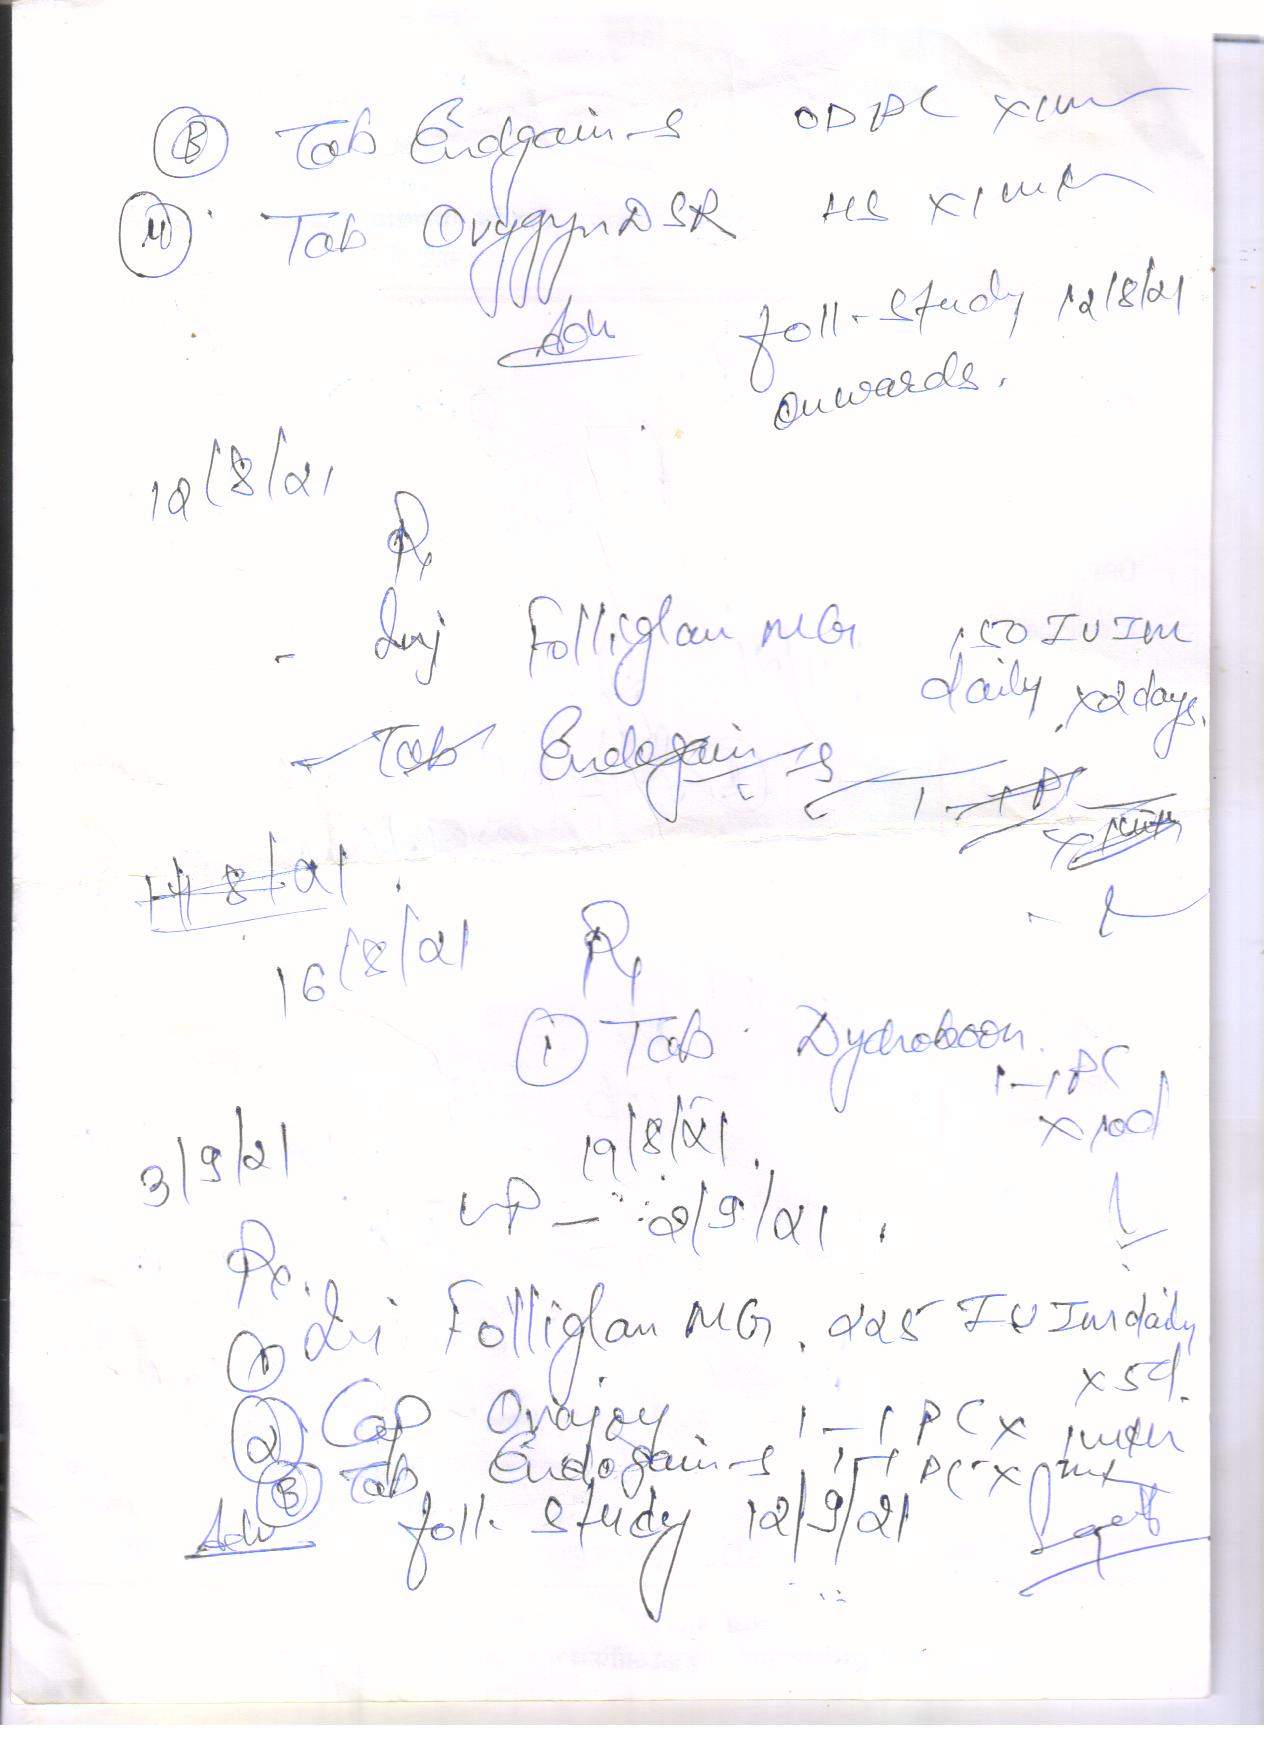 ③ Tab Endgain-S OD PC x 1m
④ Tab OvygynDSR HS x 1 mth
Adv foll. study 12/8/21
onwards.
12/8/21
Rx
- Inj Folliglan MG 150 IU IM
daily x 2 days.
- Tab Endogain-S 1-1 PC
x 1mth
14/8/21.
16/8/21 Rx
① Tab. Dydroboon
1-1 PC
x 10d
19/8/21.
3/9/21
LMP - 2/9/21.
Rx.
① Inj Folliglan MG. 225 IU IM daily
x 5d.
② Cap Ovajoy 1-1 PC x 1mth
③ Tab Endogain-S 1-1 PC x 1mt
Adv foll. study 12/9/21